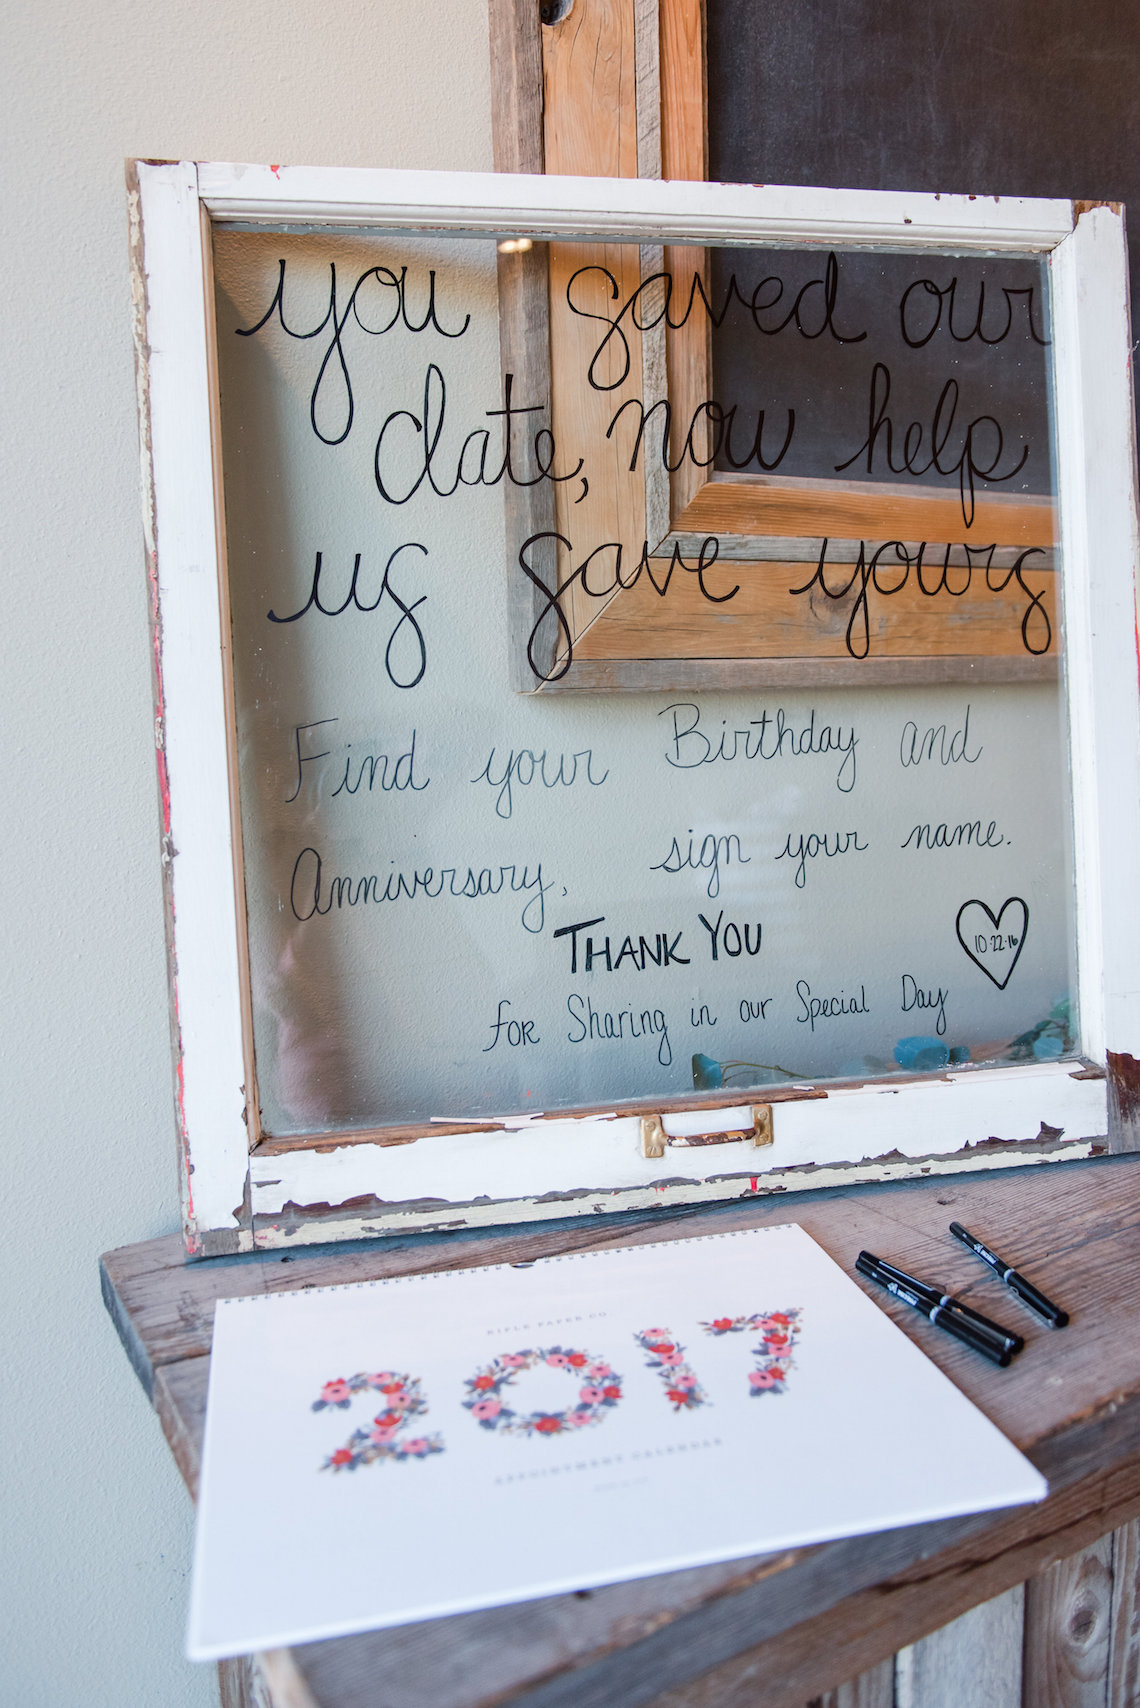 you saved our
date, now help
us save yours
Find your Birthday and
Anniversary, sign your name.
THANK YOU
10·22·16
for Sharing in our Special Day
RIFLE PAPER CO.
2017
APPOINTMENT CALENDAR